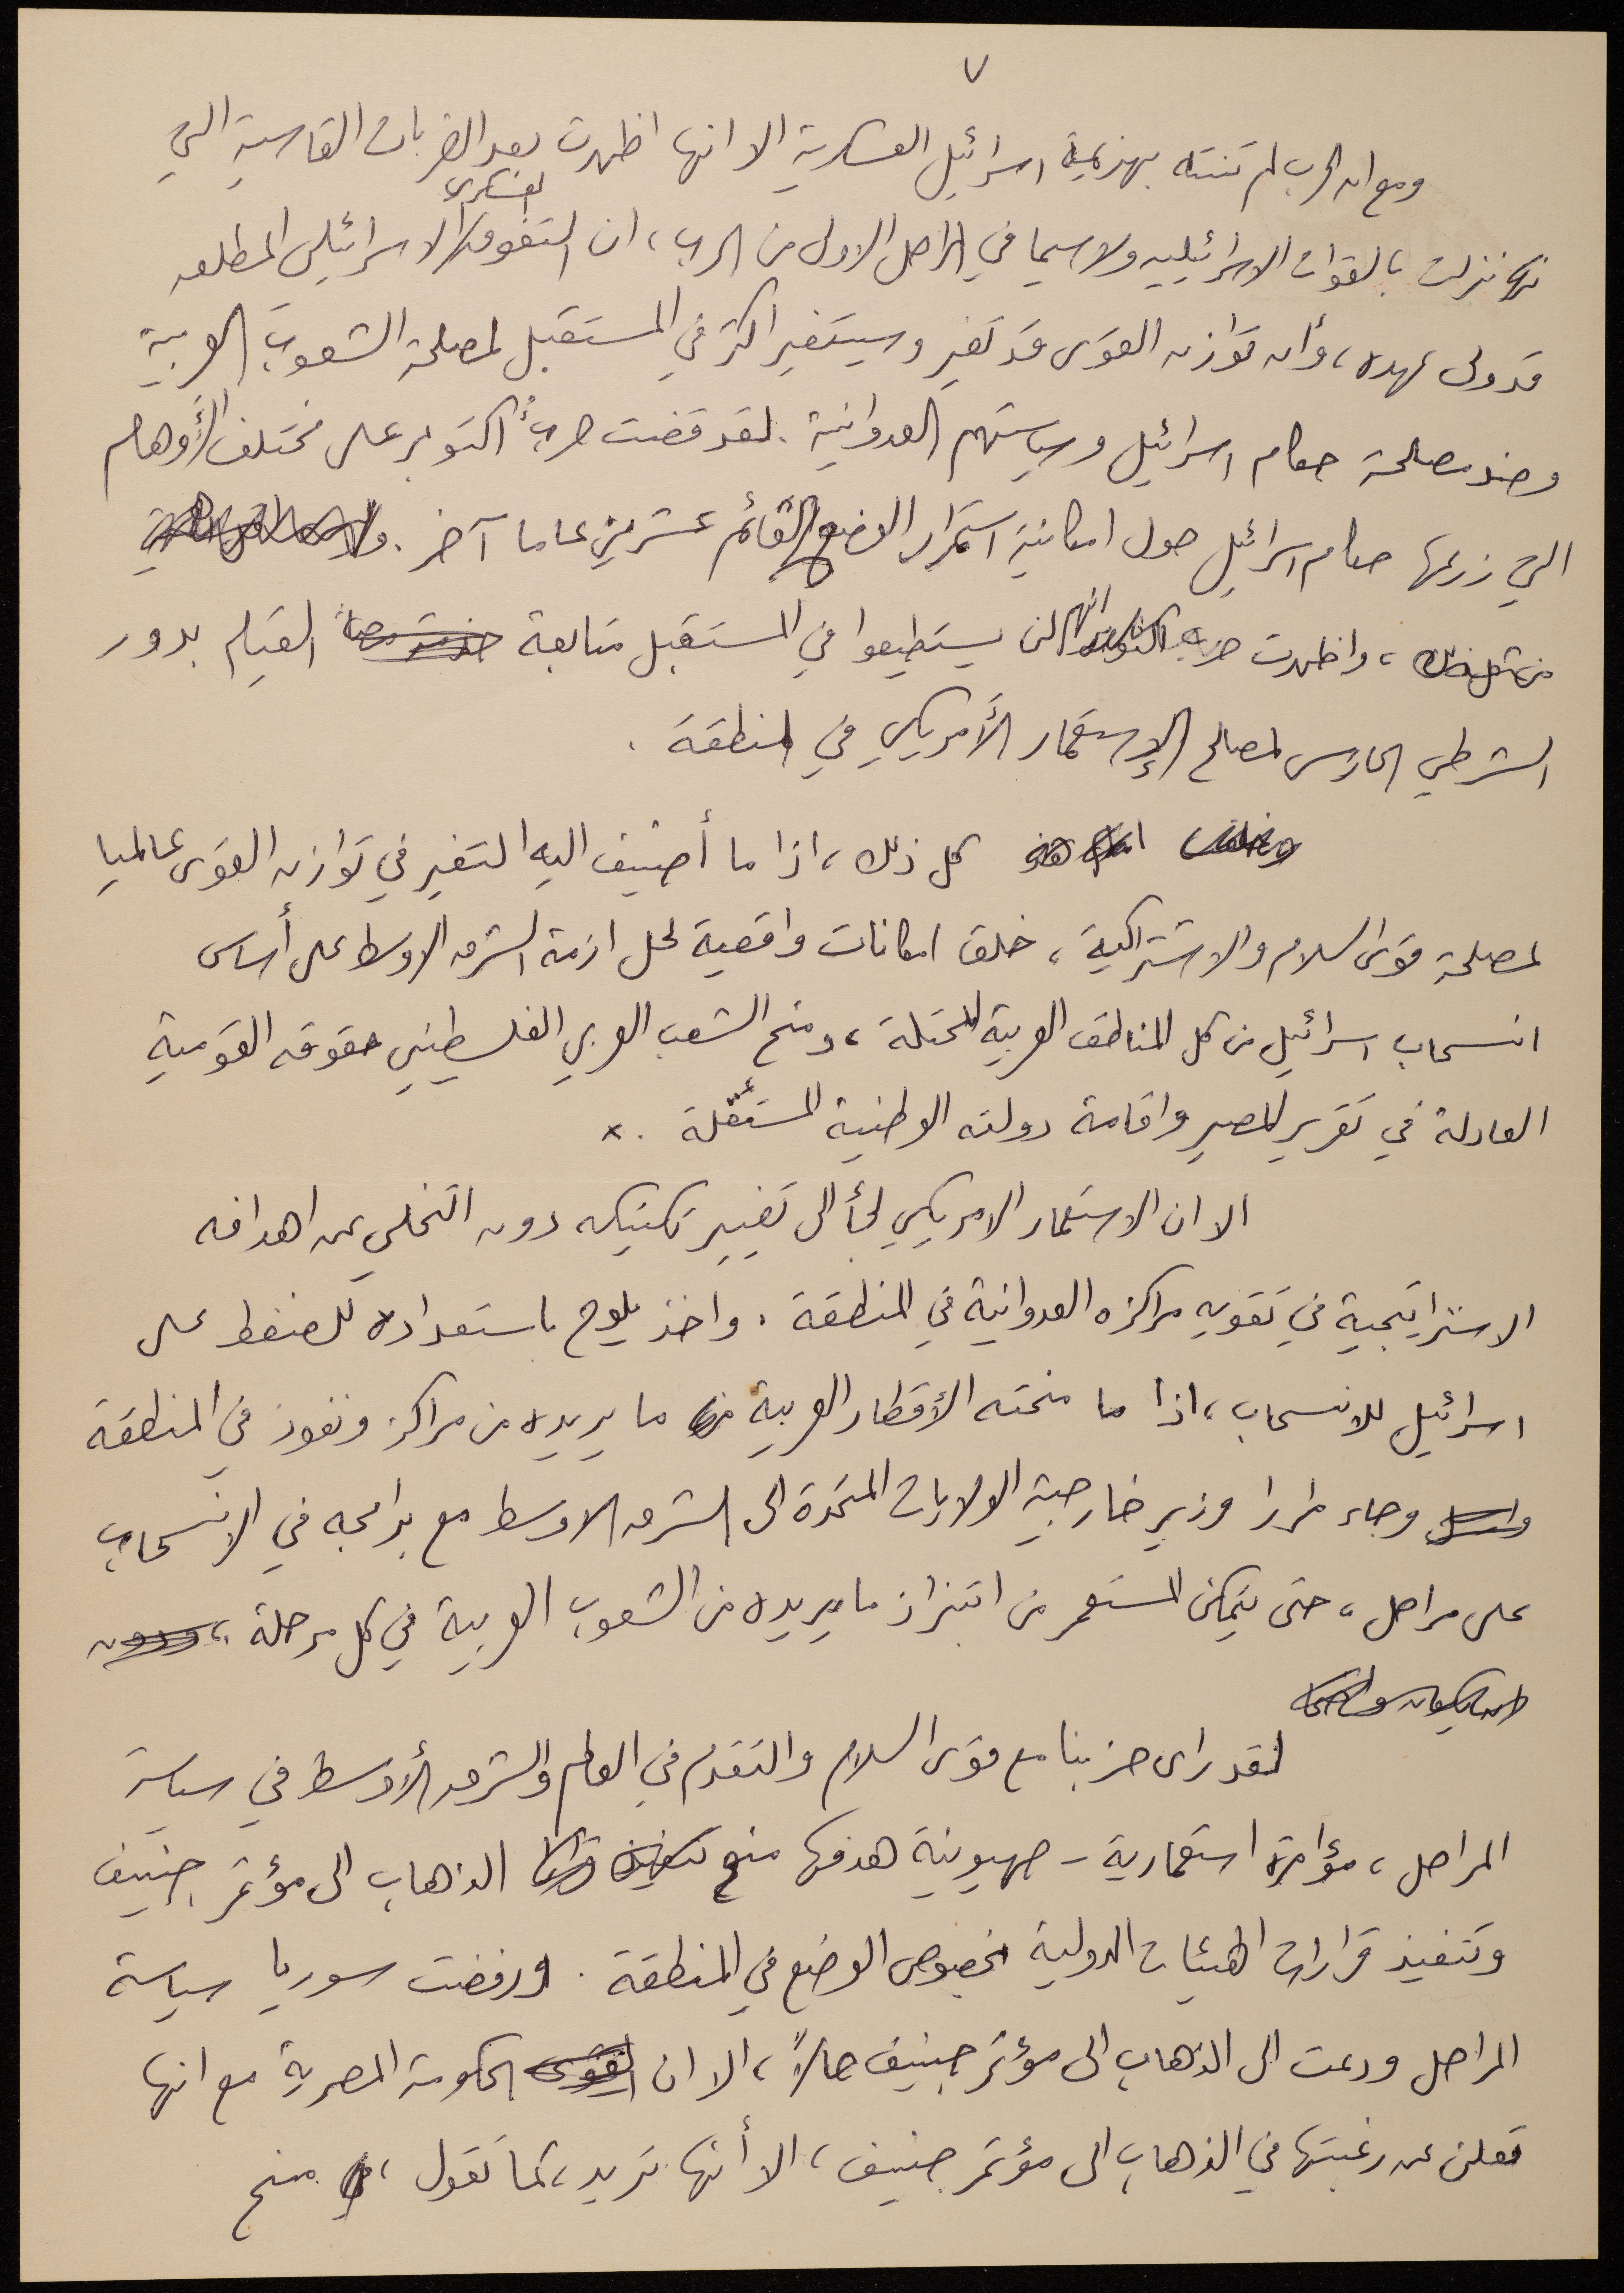 ٧
ومع ان الحرب لم تنته بهزيمة اسرائيل العسكرية الا انها اظهرت بعد الضربات القاسية التي
نزلت بالقوات الاسرائيليه ولاسيما في المراحل الاولى من الحرب، ان التفوق العسكري الاسرائيلي المطلق
قد ولى عهده، وأن توازن القوى قد تغير وسيتغير اكثر في المستقبل لمصلحة الشعوب العربية
وضد مصلحة حكام اسرائيل وسياستهم العدوانية. لقد قضت حرب أكتوبر على مختلف الأوهام
التي زرعها حكام اسرائيل حول امكانية استمرار الوضع القائم عشرين عاما آخر.
، واظهرت انهم لن يستطيعوا في المستقبل متابعة القيام بدور
الشرطي الحارس لمصالح الإستعمار الأمريكي في المنطقة.
كل ذلك، اذا ما أضيف اليه التغير في توازن القوى عالميا
لمصلحة قوى السلام والاشتراكية، خلق امكانات واقعية لحل ازمة الشرق الاوسط على أساس
انسحاب اسرائيل من كل المناطق العربية المحتلة، ومنح الشعب العربي الفلسطيني حقوقه القومية
العادلة في تقرير المصير واقامة دولته الوطنية المستقلة. ×
الا ان الاستعمار الامريكي لجأ الى تغيير تكتيكه دون التخلي عن اهدافه
الاستراتيجية في تقويه مراكزه العدوانية في المنطقة. واخذ يلوح باستعداده للضغط على
اسرائيل للانسحاب، اذا ما منحته الأقطار العربية ما يريده من مراكز ونفوذ في المنطقة
وجاء مرارا وزير خارجية الولايات المتحدة الى الشرق الاوسط مع برامجه في الانسحاب
على مراحل، حتى يتمكن المستعمر من ابتزاز ما يريده من الشعوب العربية في كل مرحلة،
لقد راى حزبنا مع قوى السلام والتقدم في العالم والشرق الأوسط في سياسة
المراحل، مؤامرة استعمارية - صهيونية هدفها منع الذهاب الى مؤتمر جنيف
وتنفيذ قرارات الهيئات الدولية بخصوص الوضع في المنطقة. ورفضت سوريا سياسة
المراحل ودعت الى الذهاب الى مؤتمر جنيف حالاً، الا ان الحكومة المصرية مع انها
تعلن عن رغبتها في الذهاب الى مؤتمر جنيف، الا أنها تريد، كما تقول، منح